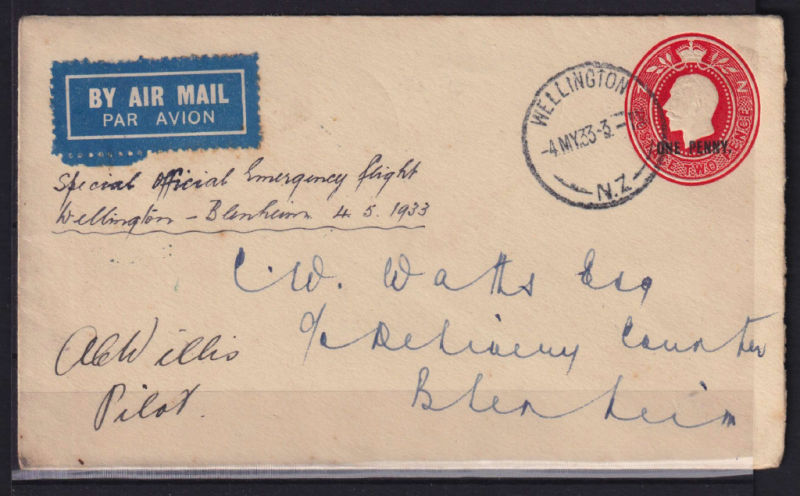 BY AIR MAIL
PAR AVION
WELLINGTON
-4 MY.33-3
N.Z
ONE PENNY.
TWO PENCE
Special Official Emergency flight
Wellington - Blenheim 4 5. 1933
C. W. Watts Esq
c/o Delivery Counter
Blenheim
Willis
Pilot.